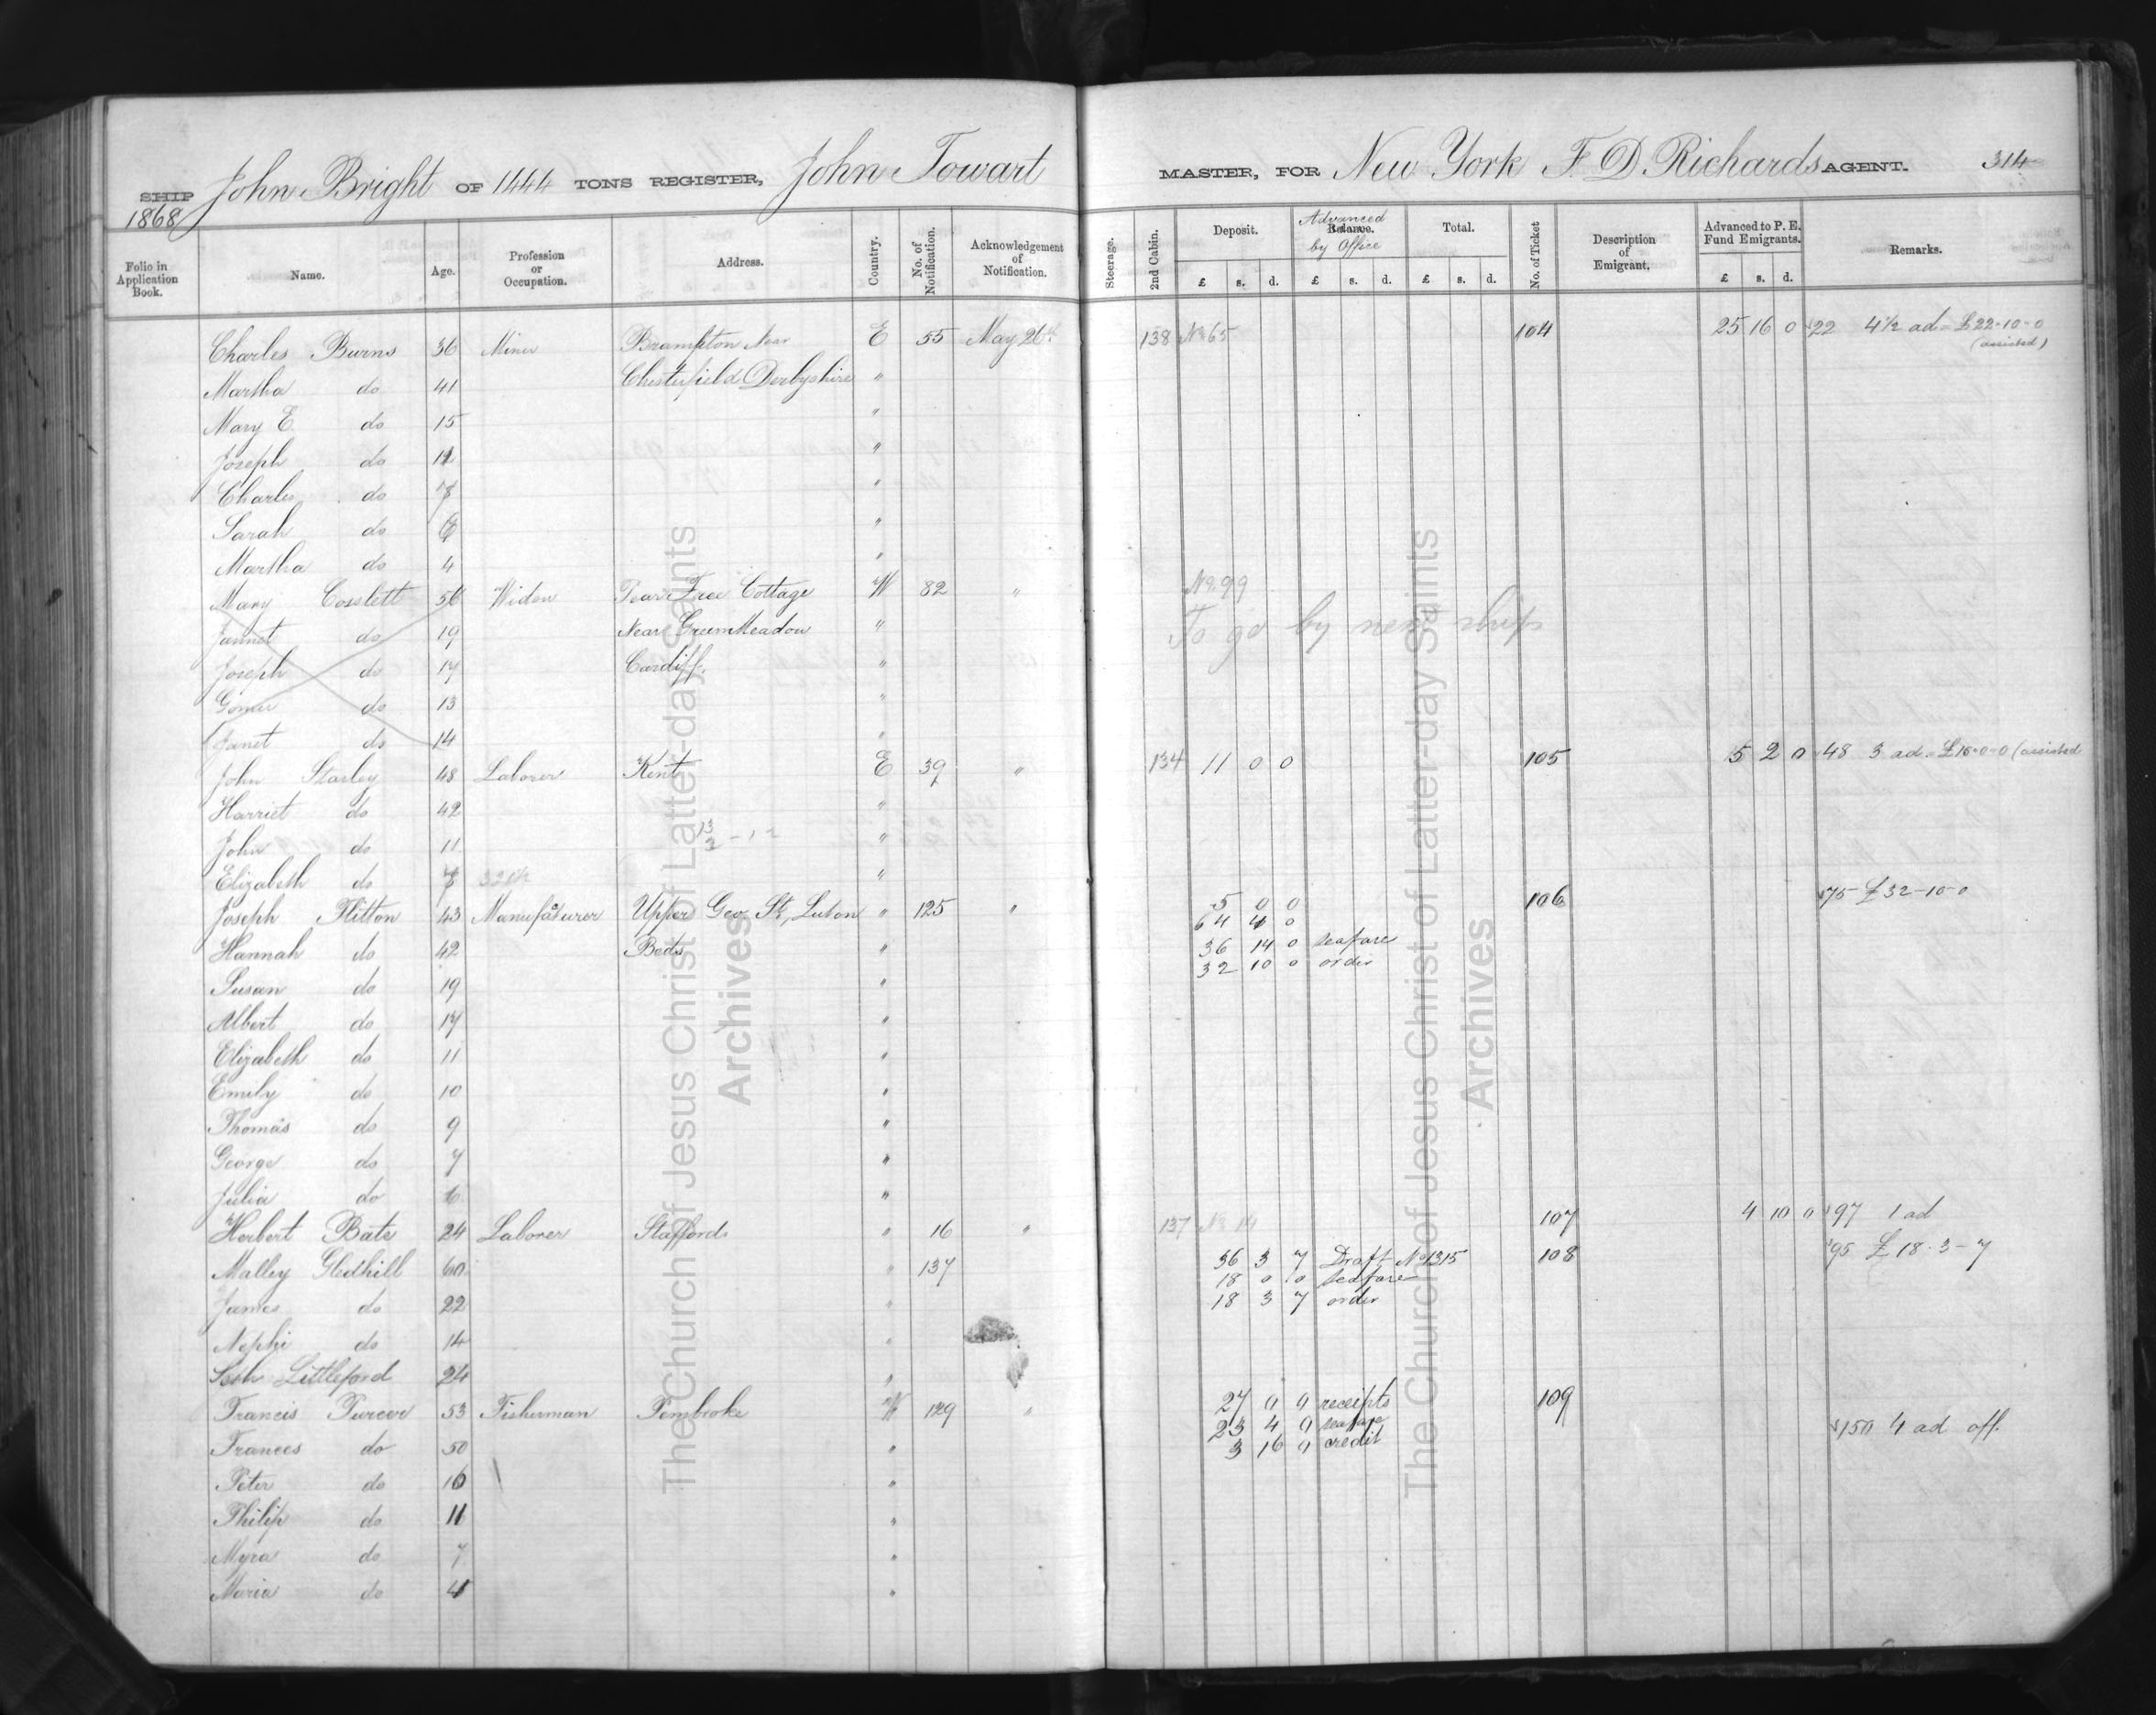 SHIP John Bright OF 1444 TONS REGISTER, John Towart MASTER, FOR New York F D Richards AGENT. 314
1868
Folio in Application Book. Name. Age. Profession or Occupation. Address. Country. No. of Notification. Acknowledgement of Notification. Steerage. 2nd Cabin. Deposit. £ s. d. Advanced Balance. by Office £ s. d. Total. £ s. d. No. of Ticket Description of Emigrant. Advanced to P. E. Fund Emigrants. £ s. d. Remarks.
Charles Burns 36 Miner Brampton Near E 55 May 26th 138 No 65 104 25 16 0 22 4½ ad = £22-10-0
(assisted)
Martha do 41 Chesterfield Derbyshire "
Mary E. do 15 "
Joseph do "
Charles do 7 "
Sarah do "
Martha do 4 "
Mary Cosslett 56 Widow Pear Tree Cottage W 82 " No. 99
Jannet do 19 Near GreenMeadow " To go by next ship
Joseph do 17 Cardiff. "
Gomer do 13 "
Janet do 14 "
John Starley 48 Laborer Kent E 39 " 134 11 0 0 105 5 2 0 48 3 ad = £15-0-0 (assisted
Harriet do 42 "
John do 11 "
Elizabeth do "
Joseph Flitton 43 Manufaturer Upper Geo. St, Luton " 125 " 5 0 0 106 75 £32-10-0
64 4 0
Hannah do 42 Beds " 36 14 0 seafare
32 10 0 order
Susan do 19 "
Albert do 17 "
Elizabeth do 11 "
Emily do 10 "
Thomas do 9 "
George do 7 "
Julia do "
Herbert Bate 24 Laborer Staffords " 16 " 137 No 14 107 4 10 0 97 1 ad
Malley Gledhill 60 " 137 36 3 7 Draft No 1315 108 95 £18-3-7
18 0 0 seafare
James do 22 " 18 3 7 order
Nephi do 14 "
Seth Littleford 24 "
Francis Purcer 53 Fisherman Pembroke W 129 " 27 0 0 receipts 109
23 4 0 seafare 150 4 ad off.
Frances do 50 " 3 16 0 credit
Peter do 16 "
Philip do 11 "
Myra do 7 "
Maria do 4 "
The Church of Jesus Christ of Latter-day Saints
Archives
The Church of Jesus Christ of Latter-day Saints
Archives